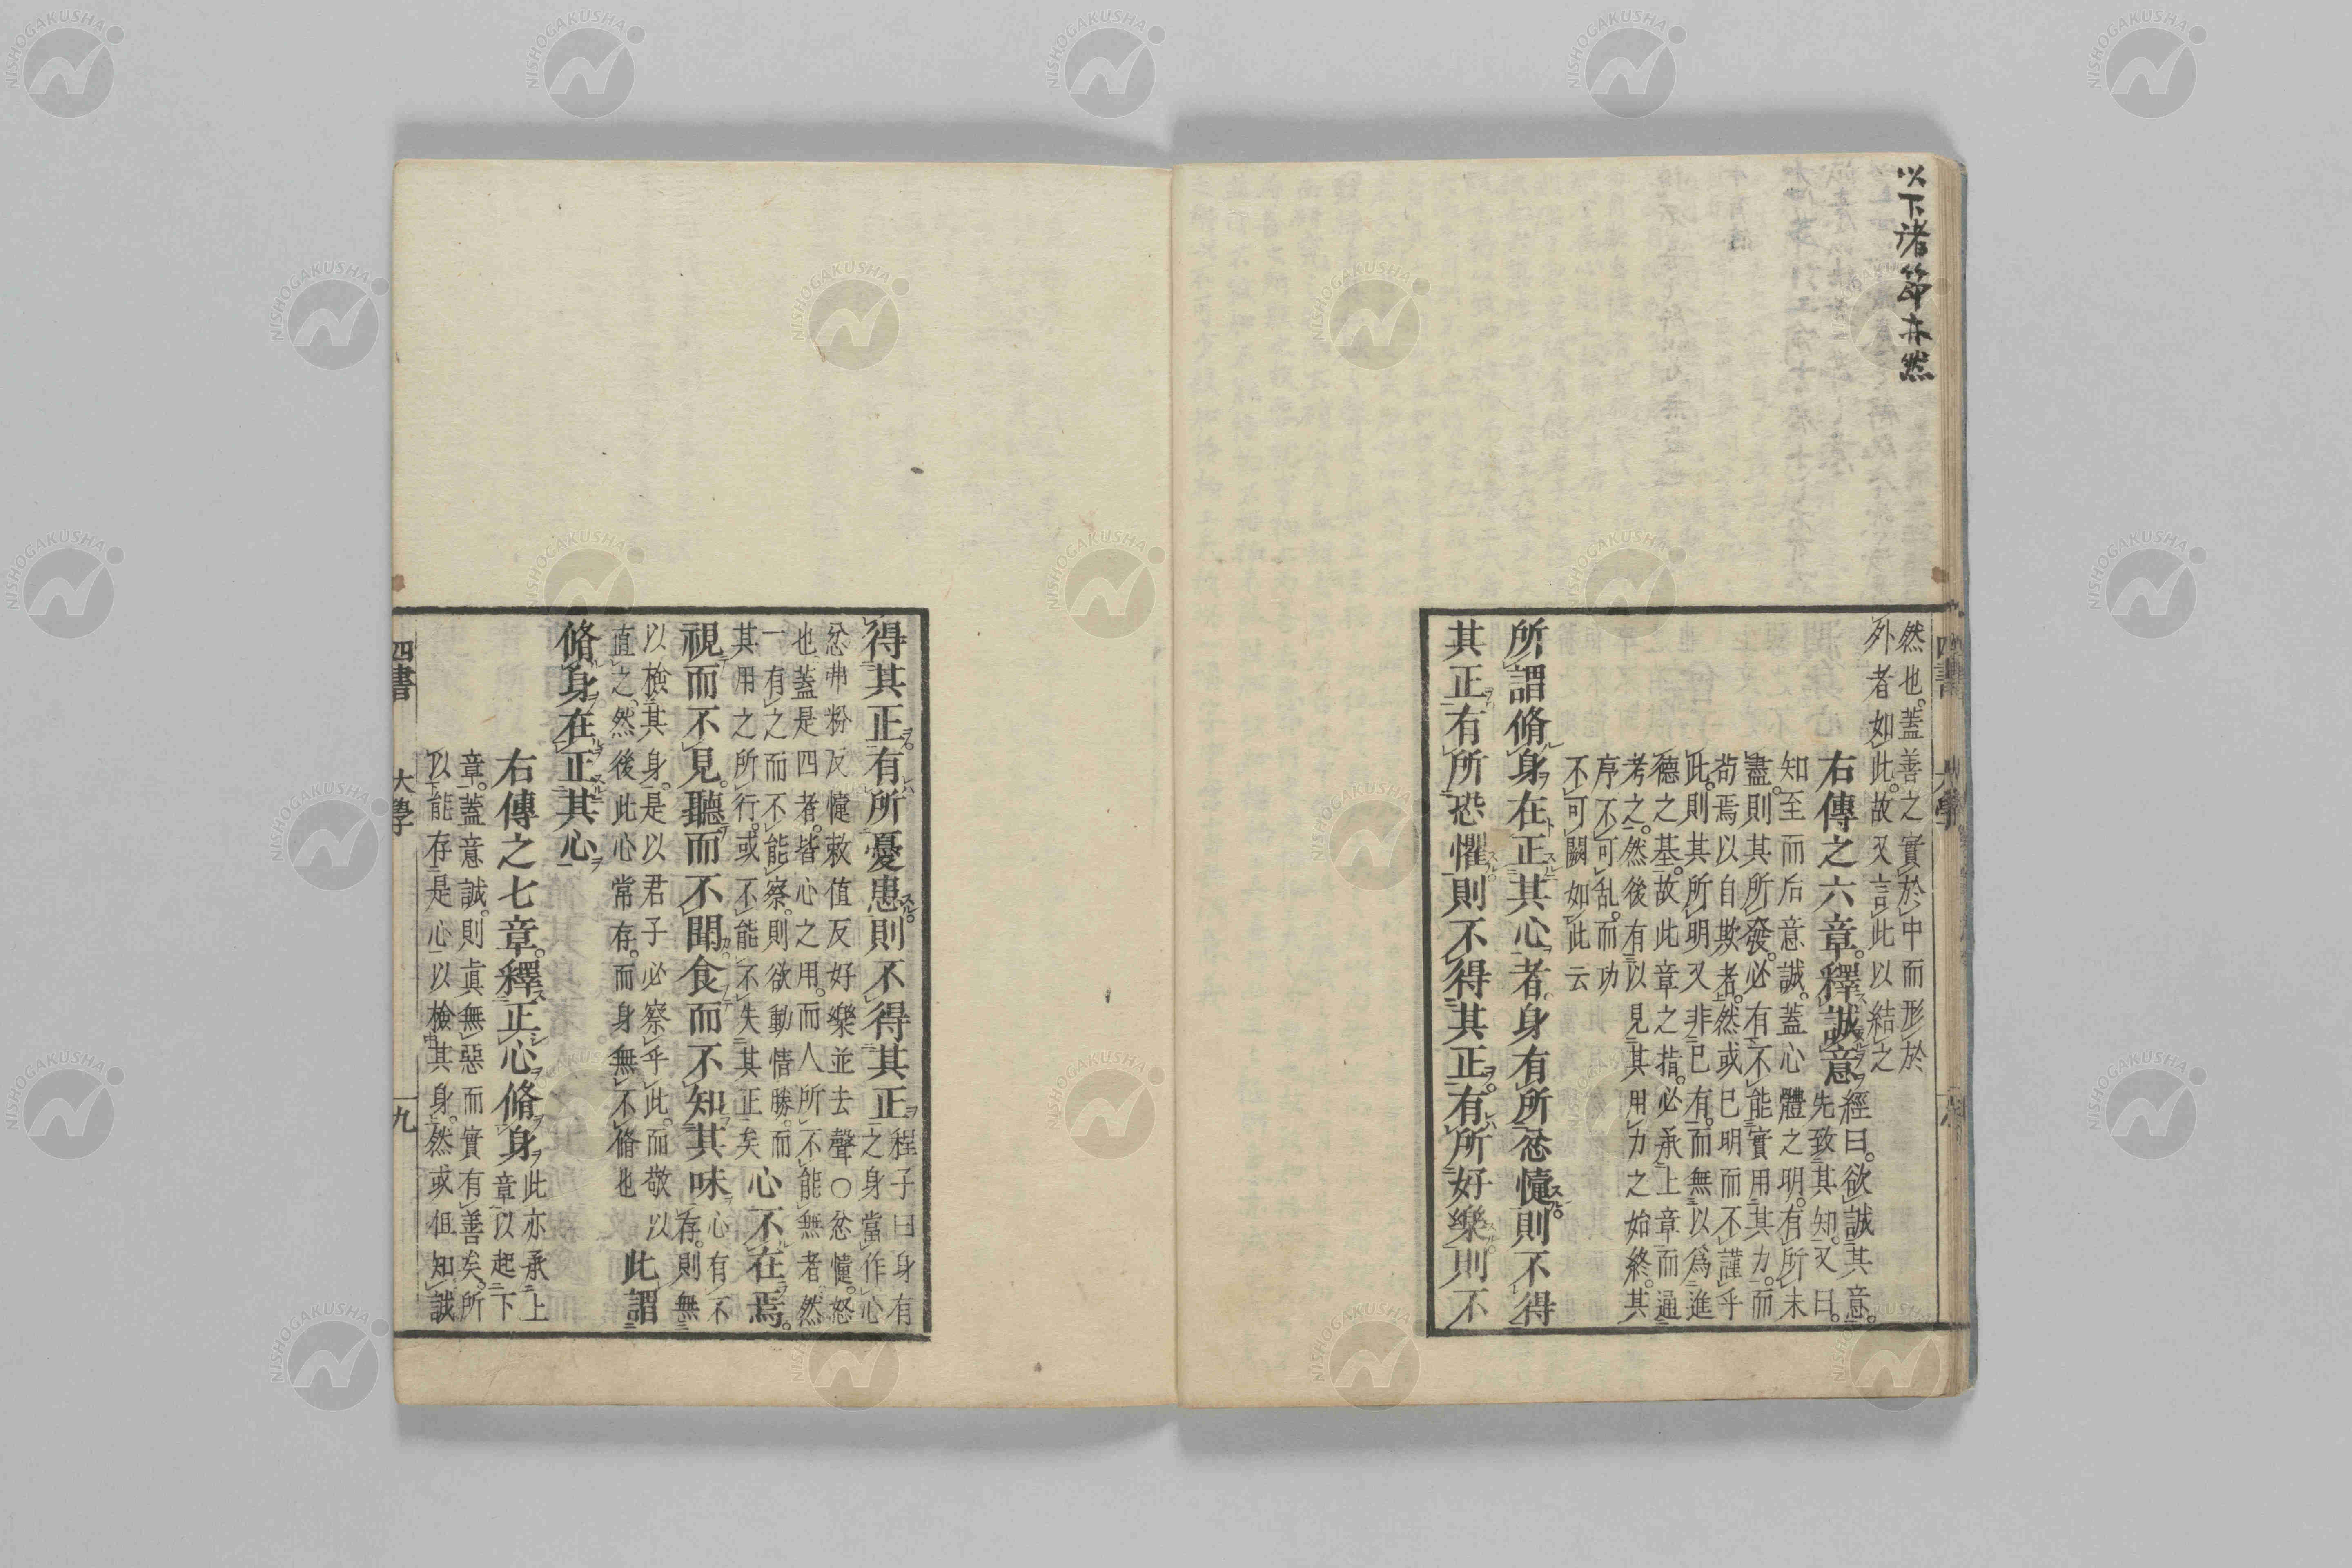 以下諸節亦然
四書 大學
然也。蓋善之實於中而形於
外者如此。故又言此以結之
右傳之六章。釋誠意
經曰。欲誠其意。
先致其知。又曰。
知至而后意誠。蓋心體之明。有所未
盡。則其所發。必有不能實用其力。而
苟焉以自欺者。然或已明而不謹乎
此。則其所明又非己有。而無以爲進
德之基。故此章之指。必承上章而通
考之。然後有以見其用力之始終。其
序不可乱。而功
不可闕如此云
所謂脩身在正其心者。身有所忿懥則不得
其正。有所恐懼則不得其正。有所好樂則不
得其正。有所憂患則不得其正
程子曰身有
之身當作心
忿弗粉反懥敕值反好樂並去聲○忿懥。怒
也蓋是四者。皆心之用。而人所不能無者。然
一有之而不能察。則欲動情勝。而
其用之所行。或不能不失其正矣
心不在焉。
視而不見。聽而不聞。食而不知其味
心有不
存。則無
以檢其身。是以君子必察乎此。而敬以
值之、然後此心常存。而身無不脩也
此謂
脩身在正其心
右傳之七章。釋正心脩身
此亦承上
章以起下
章。蓋意誠。則眞無惡而實有善矣。所
以能存是心以檢其身。然或但知誠
四書 大學 九
NISHOGAKUSHA